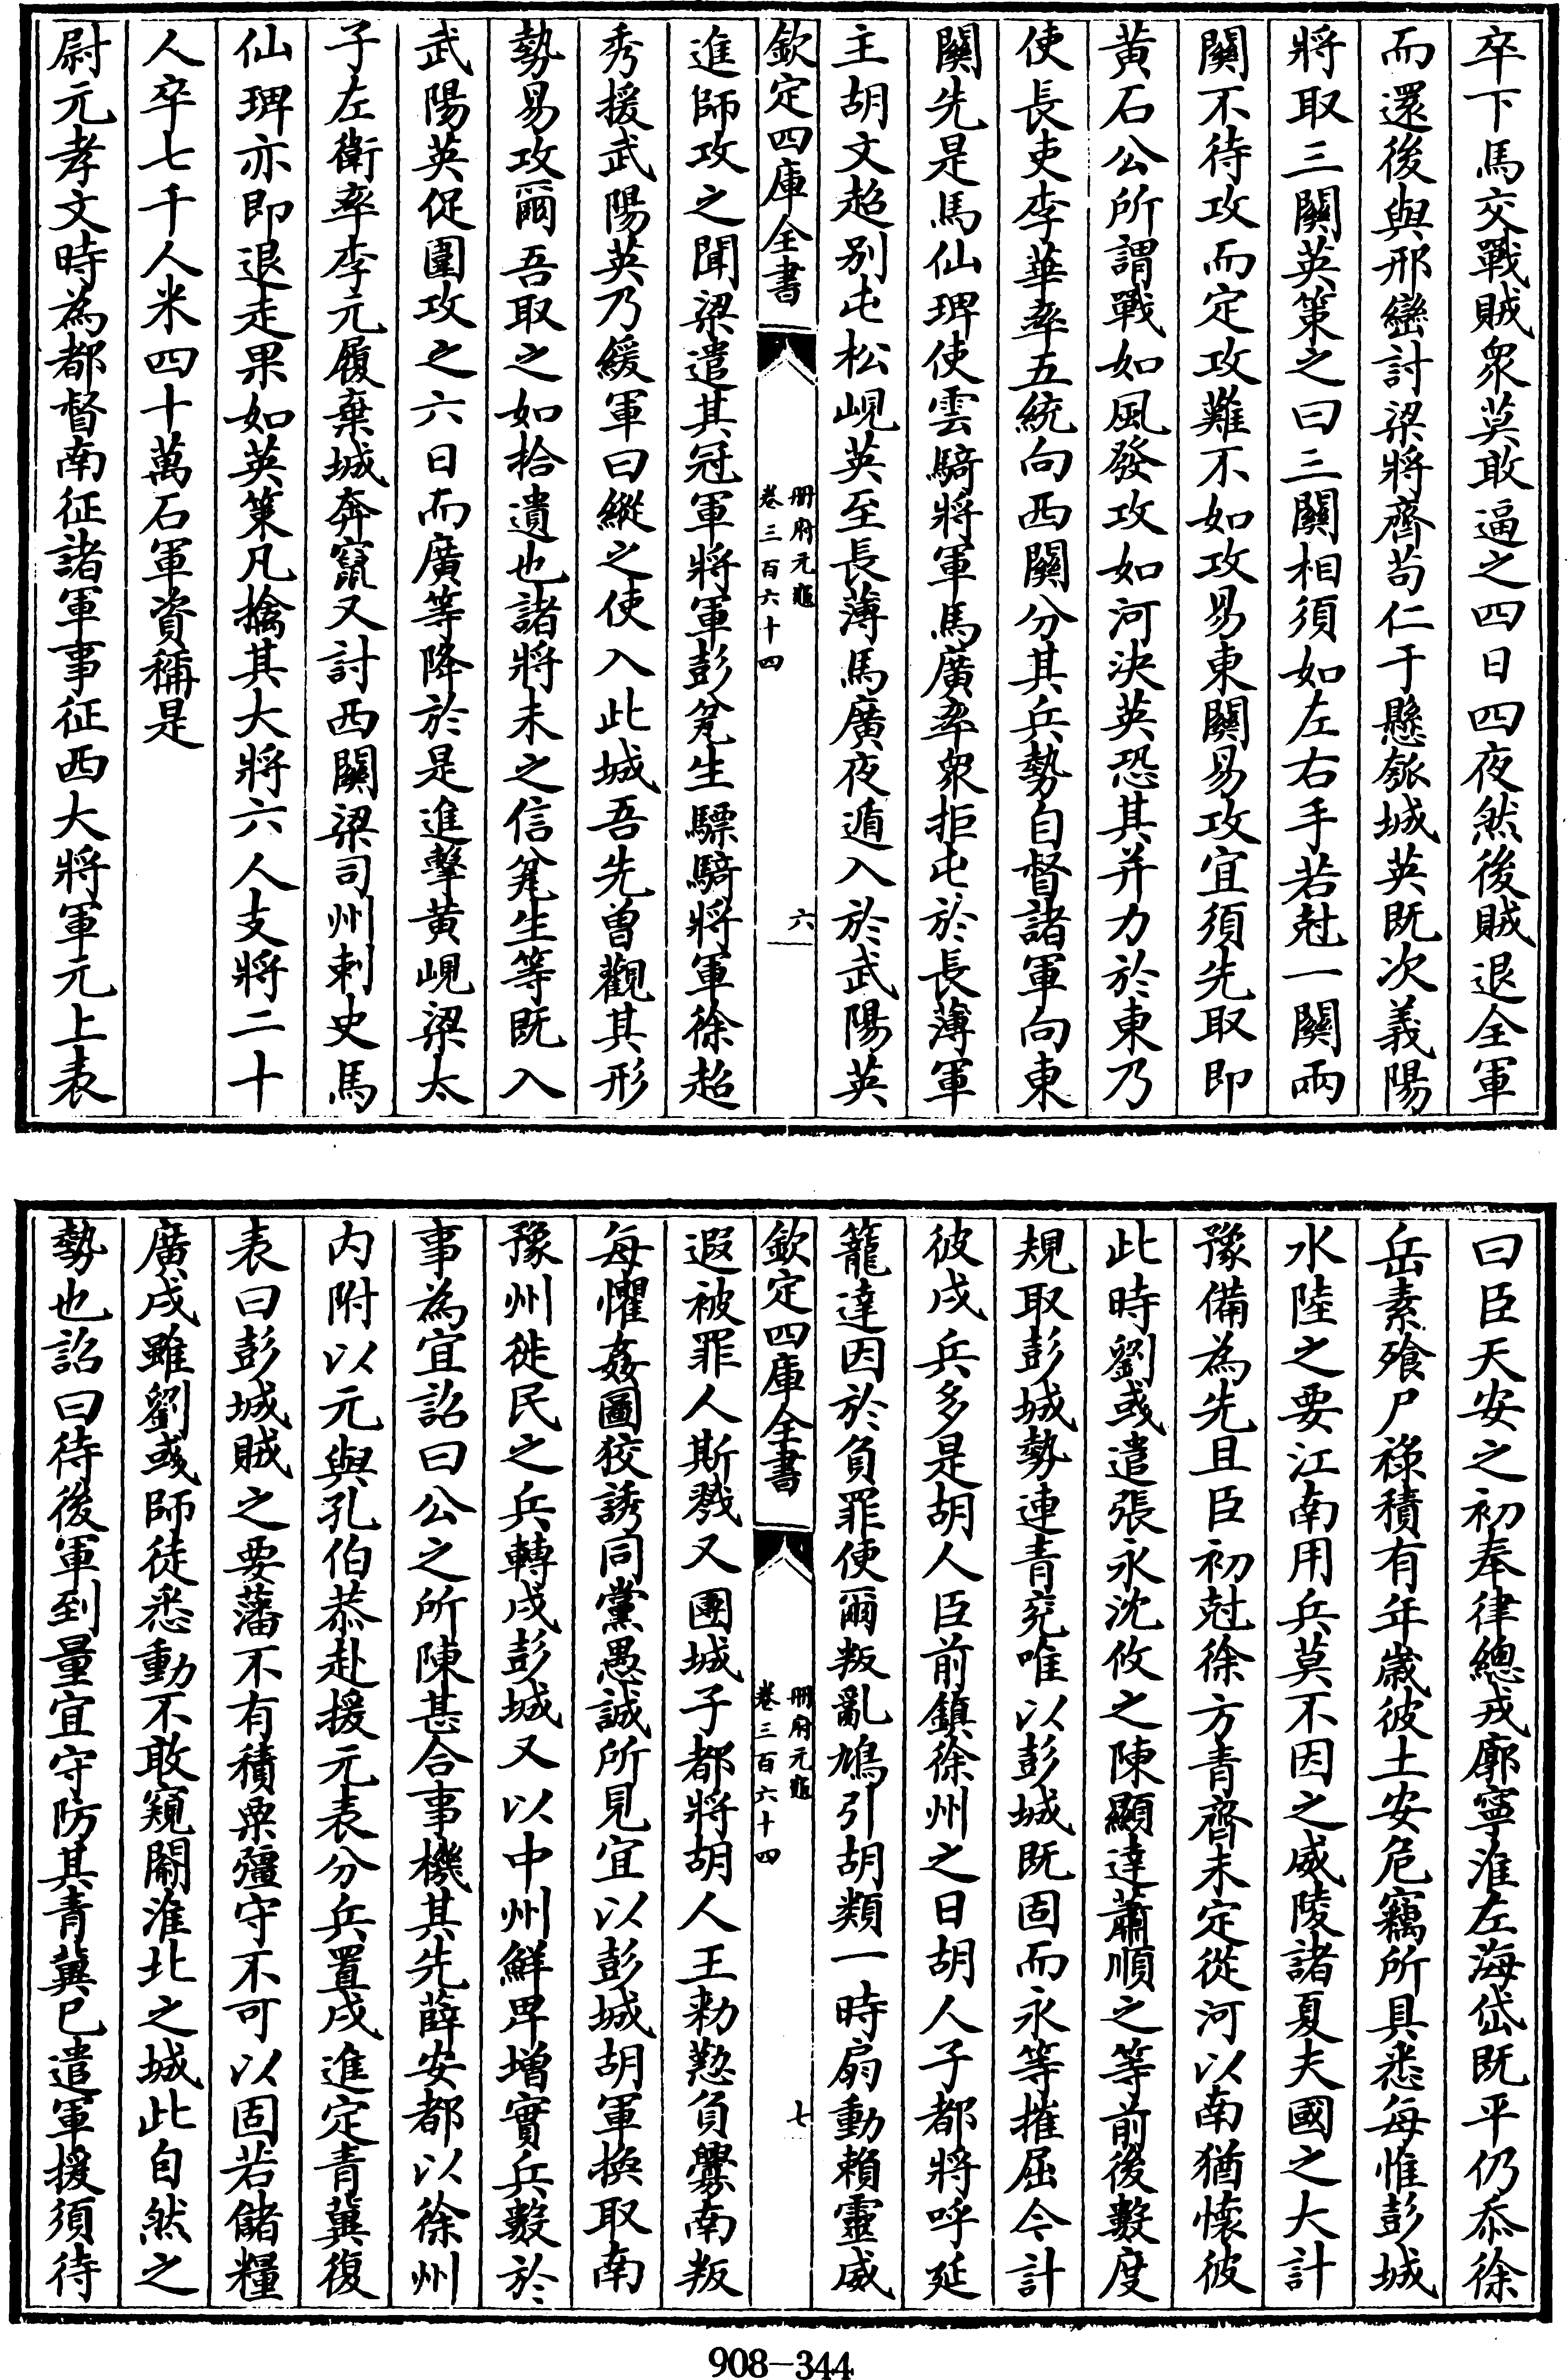 卒下馬交戰賊衆莫敢逼之四日四夜然後賊退全軍
而還後與邢巒討梁將齊苟仁于懸瓠城英既次義陽
將取三關英策之曰三關相須如左右手若尅一關兩
關不待攻而定攻難不如攻易東關易攻宜須先取即
黃石公所謂戰如風發攻如河決英恐其并力於東乃
使長吏李華率五統向西關分其兵勢自督諸軍向東
關先是馬仙琕使雲騎將軍馬廣率衆拒屯於長薄軍
主胡文超别屯松峴英至長薄馬廣夜遁入於武陽英
欽定四庫全書
冊府元龜
卷三百六十四
六
進師攻之聞梁遣其冠軍將軍彭瓫生驃騎將軍徐超
秀援武陽英乃緩軍曰縱之使入此城吾先曾觀其形
勢易攻爾吾取之如拾遺也諸將未之信瓫生等既入
武陽英促圍攻之六日而廣等降於是進擊黃峴梁太
子左衛率李元履棄城奔竄又討西關梁司州刺史馬
仙琕亦即退走果如英策凡擒其大將六人支將二十
人卒七千人米四十萬石軍資稱是
尉元孝文時為都督南征諸軍事征西大將軍元上表
曰臣天安之初奉律總戎廓寧淮左海岱既平仍忝徐
岳素飱尸祿積有年歲彼土安危竊所具悉每惟彭城
水陸之要江南用兵莫不因之威陵諸夏夫國之大計
豫備為先且臣初尅徐方青齊未定從河以南猶懷彼
此時劉彧遣張永沈攸之陳顯達蕭順之等前後數度
規取彭城勢連青兖唯以彭城既固而永等摧屈今計
彼戍兵多是胡人臣前鎮徐州之日胡人子都將呼延
籠達因於負罪便爾叛亂鳩引胡類一時扇動賴靈威
欽定四庫全書
冊府元龜
卷三百六十四
七
遐被罪人斯戮又團城子都將胡人王勑懃負釁南叛
每懼姦圖狡誘同黨愚誠所見宜以彭城胡軍換取南
豫州徙民之兵轉戍彭城又以中州鮮卑增實兵數於
事為宜詔曰公之所陳甚合事機其先薛安都以徐州
内附以元與孔伯恭赴援元表分兵置戍進定青冀復
表曰彭城賊之要藩不有積粟彊守不可以固若儲糧
廣戍雖劉彧師徒悉動不敢窺闚淮北之城此自然之
勢也詔曰待後軍到量宜守防其青冀已遣軍援須待
908-344